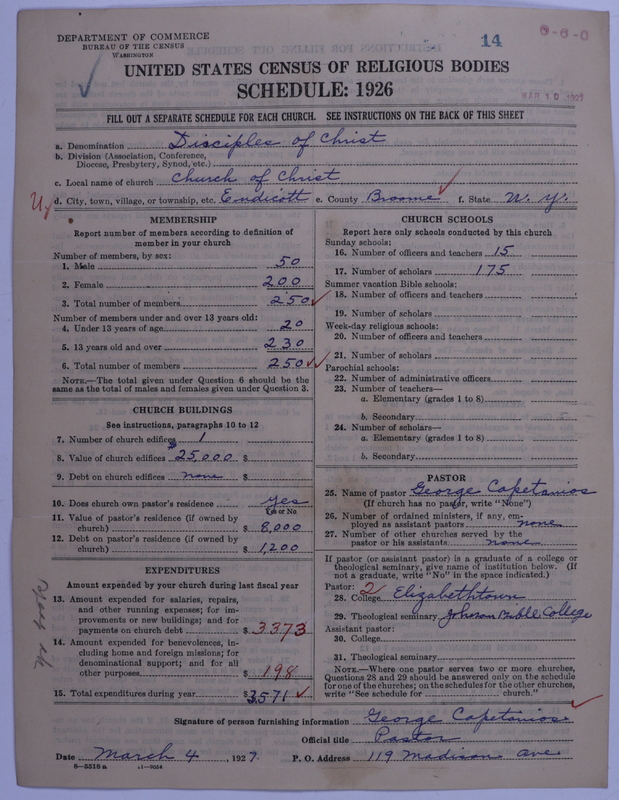 DEPARTMENT OF COMMERCE
BUREAU OF THE CENSUS
WASHINGTON
14
0-6-0
MAR 10 1927
UNITED STATES CENSUS OF RELIGIOUS BODIES
SCHEDULE: 1926
FILL OUT A SEPARATE SCHEDULE FOR EACH CHURCH. SEE INSTRUCTIONS ON THE BACK OF THIS SHEET
a. Denomination Disciples of Christ
b. Division (Association, Conference,
Diocese, Presbytery, Synod, etc.)
c. Local name of church Church of Christ
d. City, town, village, or township, etc. Endicott e. County Broome f. State N. Y.
MEMBERSHIP
Report number of members according to definition of
member in your church
Number of members, by sex:
1. Male 50
2. Female 200
3. Total number of members 250
Number of members under and over 13 years old:
4. Under 13 years of age 20
5. 13 years old and over 230
6. Total number of members 250
NOTE.—The total given under Question 6 should be the
same as the total of males and females given under Question 3.
CHURCH BUILDINGS
See instructions, paragraphs 10 to 12
7. Number of church edifices 1
8. Value of church edifices 25,000 $
9. Debt on church edifices none $
10. Does church own pastor's residence Yes
Yes or No
11. Value of pastor's residence (if owned by
church) $ 8,000
12. Debt on pastor's residence (if owned by
church) $ 1,200
EXPENDITURES
Amount expended by your church during last fiscal year
13. Amount expended for salaries, repairs,
and other running expenses; for im-
provements or new buildings; and for
payments on church debt $ 3373
14. Amount expended for benevolences, in-
cluding home and foreign missions; for
denominational support; and for all
other purposes $ 198
15. Total expenditures during year $3,571
CHURCH SCHOOLS
Report here only schools conducted by this church
Sunday schools:
16. Number of officers and teachers 15
17. Number of scholars 175
Summer vacation Bible schools:
18. Number of officers and teachers
19. Number of scholars
Week-day religious schools:
20. Number of officers and teachers
21. Number of scholars
Parochial schools:
22. Number of administrative officers
23. Number of teachers—
a. Elementary (grades 1 to 8)
b. Secondary
24. Number of scholars—
a. Elementary (grades 1 to 8)
b. Secondary
PASTOR
25. Name of pastor George Capetanios
(If church has no pastor, write "None")
26. Number of ordained ministers, if any, em-
ployed as assistant pastors none
27. Number of other churches served by the
pastor or his assistants none
If pastor (or assistant pastor) is a graduate of a college or
theological seminary, give name of institution below. (If
not a graduate, write "No" in the space indicated.)
Pastor: 2
28. College Elizabethtown
29. Theological seminary Johnson Bible College
Assistant pastor:
30. College
31. Theological seminary
NOTE.—Where one pastor serves two or more churches,
Questions 28 and 29 should be answered only on the schedule
for one of the churches; on the schedules for the other churches,
write "See schedule for church."
Signature of person furnishing information George Capetanios
Official title Pastor
Date March 4, 1927 P. O. Address 119 Madison Ave
8—5518 a 11—9654